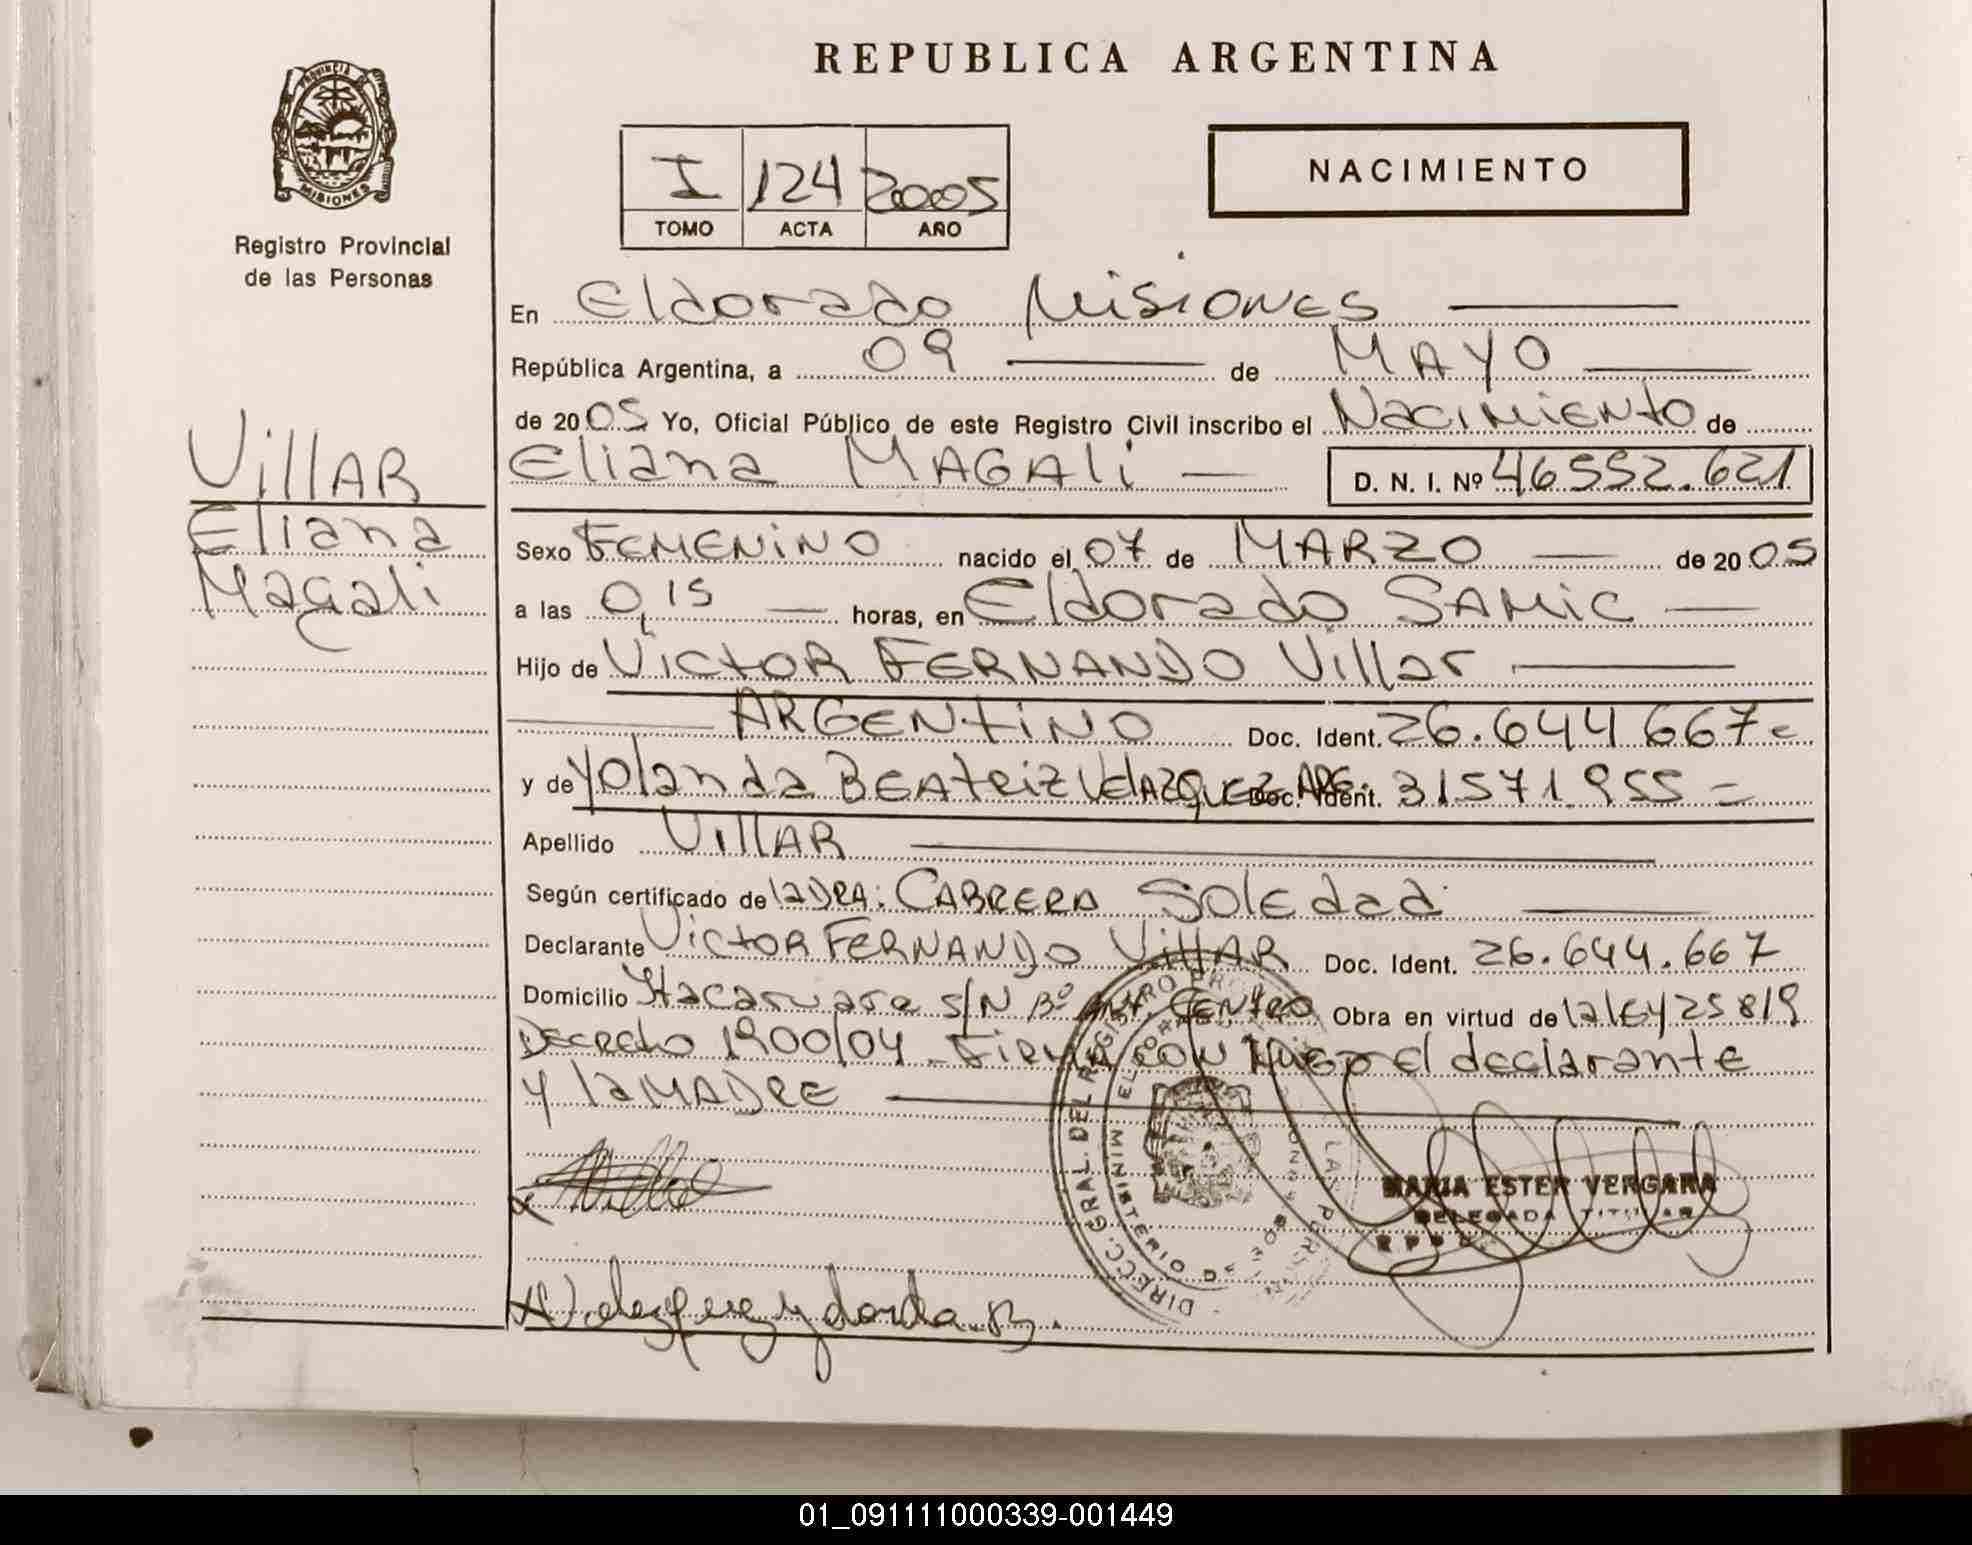 REPUBLICA ARGENTINA
PROVINCIA DE
MISIONES
Registro Provincial
de las Personas
I 124 2005
TOMO ACTA AÑO
NACIMIENTO
Villar
Eliana
Magali
En Eldorado Misiones
República Argentina, a 09 de MAYO
de 2005 Yo, Oficial Público de este Registro Civil inscribo el Nacimiento de
Eliana MAGALi D. N. I. Nº 46552.621
Sexo FEMENiNO nacido el 07 de MARZO de 2005
a las 0,15 horas, en Eldorado SAMiC
Hijo de VictoR FERNANDO Villar
ARGENtiNO Doc. Ident. 26.644 667
y de Yolanda BEAtriz VelAZQUEZ ARG. Doc. Ident. 31571955
Apellido VillAR
Según certificado de la DRA: CABRERA SolEdad
Declarante VictoR FERNANDO VillAR Doc. Ident. 26.644.667
Domicilio s/N Bº CENTRO Obra en virtud de la lEy 25819
Decreto 1900/04 - FiRMA CON el declarante
y la MADRE
DIRECC. GRAL. DEL REGISTRO
MINISTERIO DE
MARIA ESTER VERGARA
DELEGADA TITULAR
Velazquez Yolanda B.
01_091111000339-001449